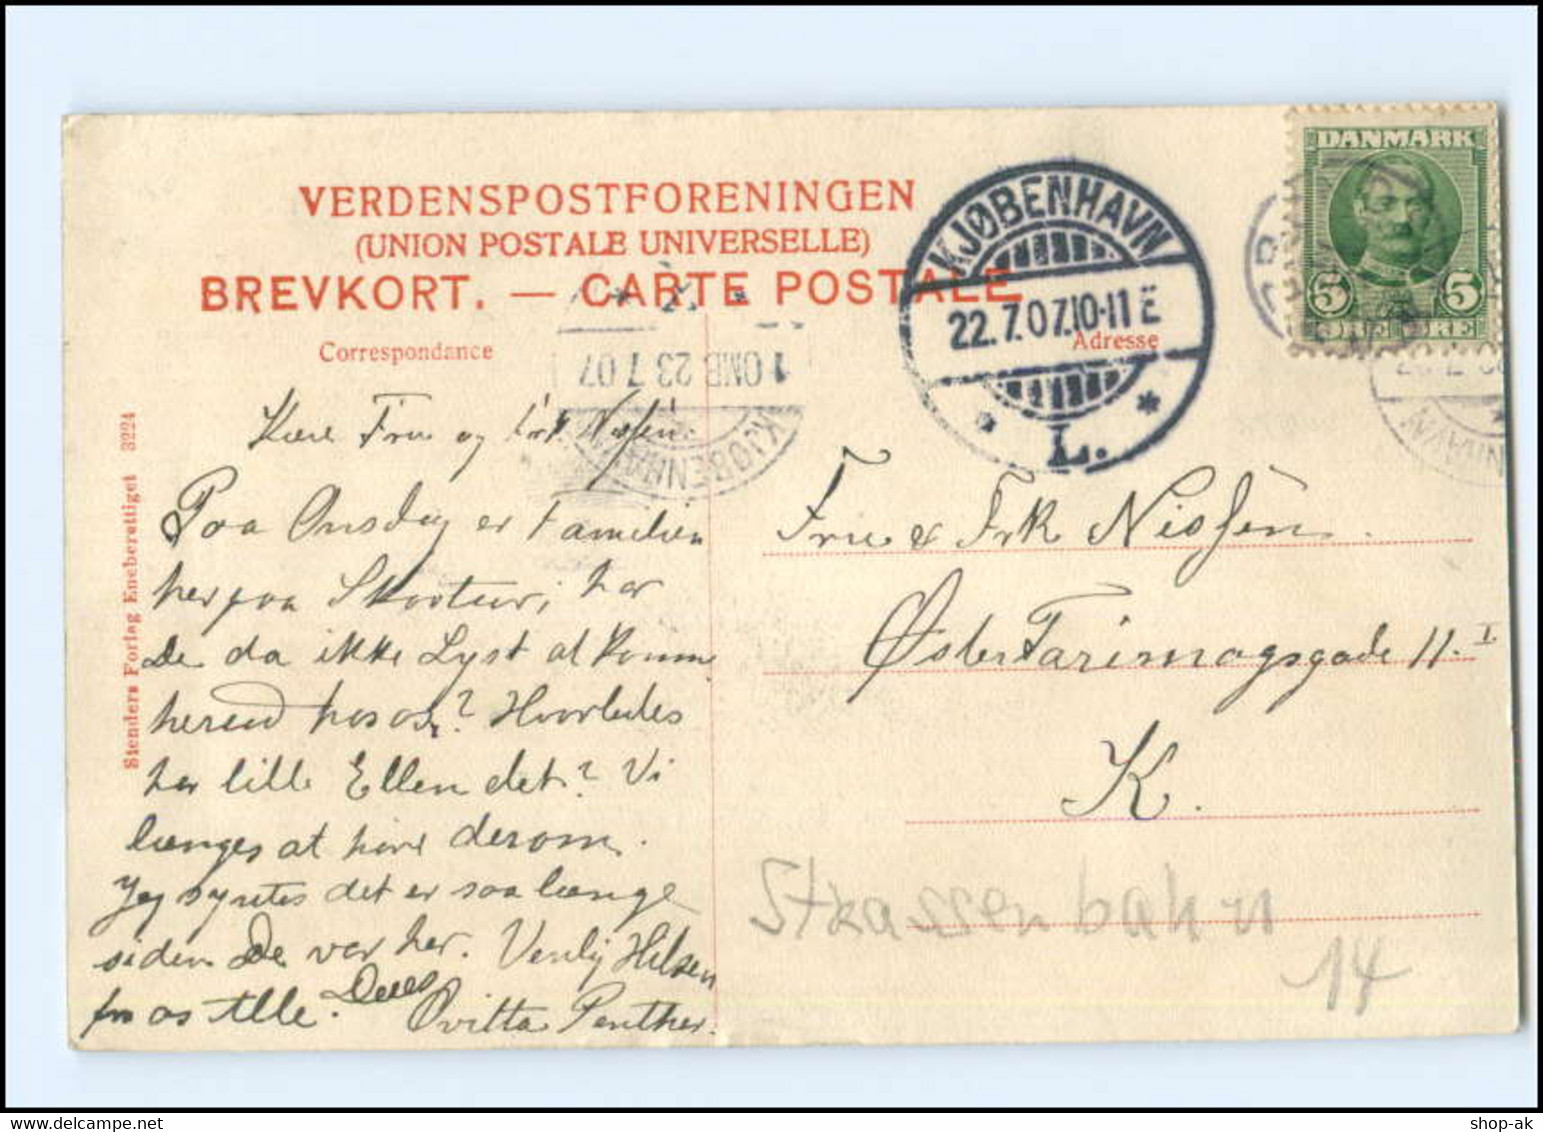 VERDENSPOSTFORENINGEN
(UNION POSTALE UNIVERSELLE)
BREVKORT. — CARTE POSTALE
Correspondance
Adresse
DANMARK
5 5
ØRE ØRE
KJØBENHAVN
22.7.07.10-11 E
L.
1 OMB 23 7 07
KJØBENHAVN
Stenders Forlag Eneberettiget 3224
Kære Frue og Frk Nissen.
Paa Onsdag er Familien
herpaa Skovtur; har
De da ikke Lyst at komme
herud hos os? Hvorledes
har lille Ellen det? Vi
længes at høre derom.
Jeg synes det er saa længe
siden De var her. Venlig Hilsen
fra os Alle. Deres
Ovitta Penther.
Frue & Frk Nissen.
Øster Farimagsgade 11. I
K.
Strassenbahn
14
shop-ak